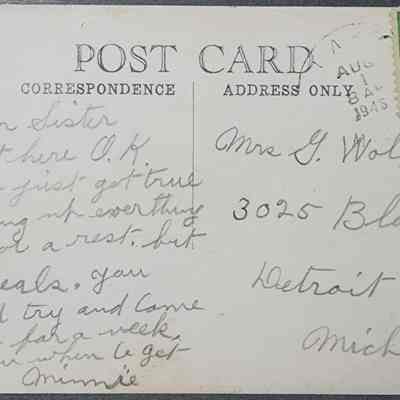 POST CARD
CORRESPONDENCE
ADDRESS ONLY
AUG
1
8 A
1945
Sister
here O.K.
just got true
ing up everthing
or a rest. but
eals. you
try and Come
for a week.
when to get
Minnie
Mrs G. Wol
3025 Bla
Detroit
Mich